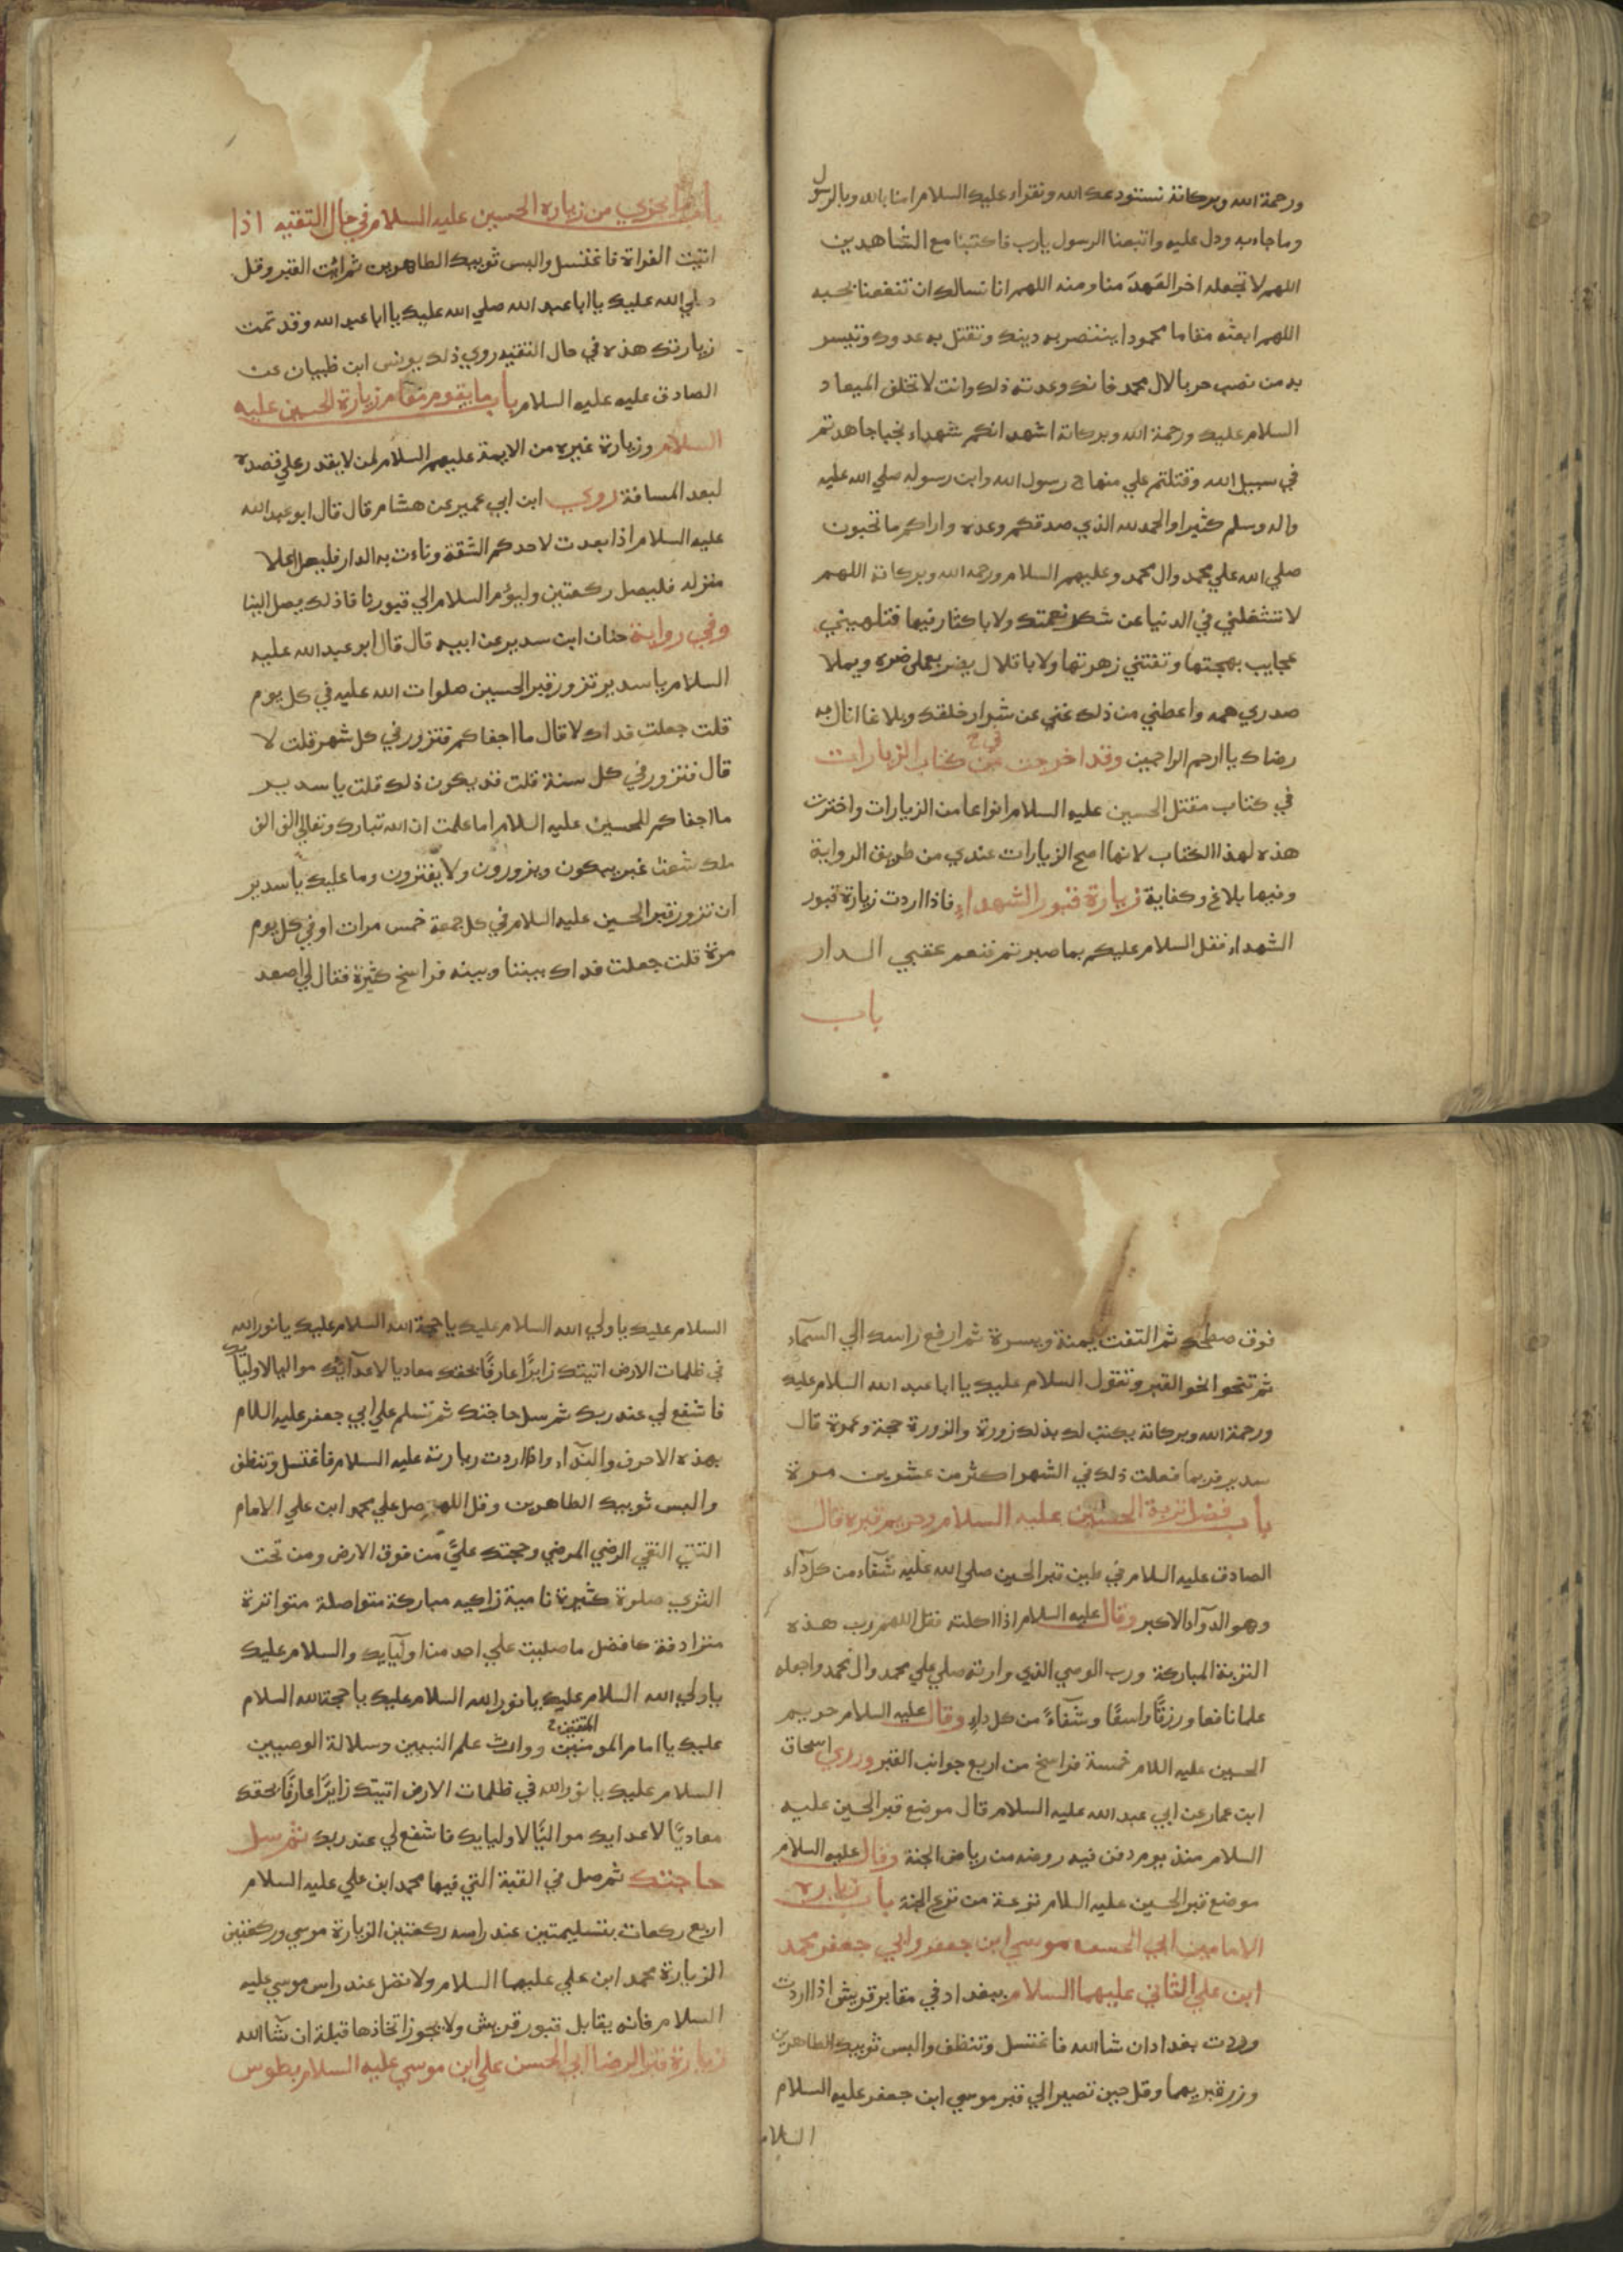 ورحمة الله وبركاته نستودعك الله ونقراء عليك السلام امنا بالله وبالرسول
وما جاء به ودل عليه واتبعنا الرسول يارب فاكتبنا مع الشاهدين
اللهم لا تجعله اخر العهد منا ومنه اللهم انا نسالك ان تنفعنا بحبه
اللهم ابعثه مقاما محمودا ينتصر به دينك وتقتل به عدوك وتيسر
به من نصب حربا لال محمد فانك وعدته ذلك وانت لا تخلف الميعاد
السلام عليك ورحمة الله وبركاته اشهد انكم شهداء نجبا جاهدتم
في سبيل الله وقتلتم علي منهاج رسول الله وابن رسوله صلي الله عليه
واله وسلم كثيرا والحمد لله الذي صدقكم وعده واراكم ما تحبون
صلي الله علي محمد وال محمد وعليهم السلام ورحمه الله وبركاته اللهم
لا تشغلني في الدنيا عن شكر نعمتك ولا باكثار فيها فتلهيني
عجايب بهجتها وتفتني زهرتها ولا باقلال يضر بعملي ضره ويملا
صدري همه واعطني من ذلك غني عن شرار خلقك وبلاغا انال به
رضاك يا ارحم الراحمين وقد اخرجت من كتاب الزيارات
في كتاب مقتل الحسين عليه السلام انواعا من الزيارات واخترت
هذه لهذا الكتاب لانها اصح الزيارات عندي من طريق الرواية
وفيها بلاغ وكفاية زيارة قبور الشهداء فاذا اردت زيارة قبور
الشهداء فقل السلام عليكم بما صبرتم فنعم عقبي الدار
باب
باب ما يجزي من زيارة الحسين عليه السلام في حال التقيه اذا
اتيت الفراة فاغتسل والبس ثوبيك الطاهرين ثم ائت القبر وقل
صلي الله عليك يا ابا عبد الله صلي الله عليك يا ابا عبد الله وقد تمت
زيارتك هذه في حال التقيه روي ذلك يونس ابن ظبيان عن
الصادق عليه عليه السلام باب ما يقوم مقام زيارة الحسين عليه
السلام وزيارة غيره من الايمة عليهم السلام لمن لا يقدر علي قصده
لبعد المسافة روي ابن ابي عمير عن هشام قال قال ابو عبد الله
عليه السلام اذا بعدت لاحدكم الشقة وناءت به الدار فليصل اعلا
منزله فليصل ركعتين وليؤم السلام الي قبورنا فاذلك يصل الينا
وفي رواية حنان ابن سدير عن ابيه قال قال ابو عبد الله عليه
السلام يا سدير تزور قبر الحسين صلوات الله عليه في كل يوم
قلت جعلت فداك لا قال ما اجفاكم فتزور في كل شهر قلت لا
قال فتزور في كل سنة قلت قد يكون ذلك قلت يا سدير
ما اجفاكم للحسين عليه السلام اما علمت ان الله تبارك وتعالي الف الف
ملك شعث غبر يبكون ويزورون ولا يفترون وما عليك يا سدير
ان تزور قبر الحسين عليه السلام في كل جمعة خمس مرات او في كل يوم
مرة قلت جعلت فداك بيننا وبينه فراسخ كثيرة فقال لي اصعد
فوق سطحك ثم التفت يمنة ويسرة ثم ارفع راسك الي السمآء
ثم تنحو انحو القبر وتقول السلام عليك يا ابا عبد الله السلام عليك
ورحمة الله وبركاته يكتب لك بذلك زورة والزورة حجة وعمرة قال
سدير فربما فعلت ذلك في الشهر اكثر من عشرين مرة
باب فضل تربة الحسين عليه السلام وحريم قبره قال
الصادق عليه السلام في طين قبر الحسين صلي الله عليه شفآء من كل دآء
وهو الدوآء الاكبر وقال عليه السلام اذا اكلته فقل اللهم رب هذه
التربة المباركة ورب الوصي الذي وارته صلي علي محمد وال محمد واجعله
علما نافعا ورزقًا واسعًا وشفآءً من كل داءٍ وقال عليه السلام حريم
الحسين عليه السلام خمسة فراسخ من اربع جوانب القبر وروي اسحاق
ابن عمار عن ابي عبد الله عليه السلام قال موضع قبر الحسين عليه
السلام منذ يوم دفن فيه روضه من رياض الجنة وقال عليه السلام
موضع قبر الحسين عليه السلام ترعة من ترع الجنة باب زيارة
الامامين ابي الحسن موسي ابن جعفر وابي جعفر محمد
ابن علي الثاني عليهما السلام ببغداد في مقابر قريش اذا اردت
وردت بغداد ان شا الله فاغتسل وتنظف والبس ثوبيك الطاهرين
وزر قبريهما وقل حين تصير الي قبر موسي ابن جعفر عليه السلام
السلام
السلام عليك يا ولي الله السلام عليك يا حجة الله السلام عليك يا نور الله
في ظلمات الارض اتيتك زايرًا عارفًا بحقك معاديا لاعدآئك مواليا لاوليآيك
فاشفع لي عند ربك ثم سل حاجتك ثم تسلم علي ابي جعفر عليه السلام
بهذه الاحرف والبدآء واذا اردت زيارته عليه السلام فاغتسل وتنظف
والبس ثوبيك الطاهرين وقل اللهم صل علي محمد ابن علي الامام
التقي النقي الرضي المرضي وحجتك علي من فوق الارض ومن تحت
الثري صلوة كثيرة نامية زاكيه مباركة متواصلة متواترة
مترادفة كافضل ما صليت علي احد من اوليآيك والسلام عليك
يا ولي الله السلام عليك يا نور الله السلام عليك يا حجة الله السلام
عليك يا امام المومنين المتقين ووارث علم النبيين وسلالة الوصيين
السلام عليك يا نور الله في ظلمات الارض اتيتك زايرًا عارفًا بحقك
معاديًا لاعدايك مواليًا لاوليايك فاشفع لي عند ربك ثم سل
حاجتك ثم صل في القبة التي فيها محمد ابن علي عليه السلام
اربع ركعات بتسليمتين عند راسه ركعتين لزيارة موسي وركعتين
لزيارة محمد ابن علي عليهما السلام ولا تصل عند راس موسي عليه
السلام فانه يقابل قبور قريش ولا يجوز اتخاذها قبلة ان شآ الله
زيارة قبر الرضا ابي الحسن علي ابن موسي عليه السلام بطوس